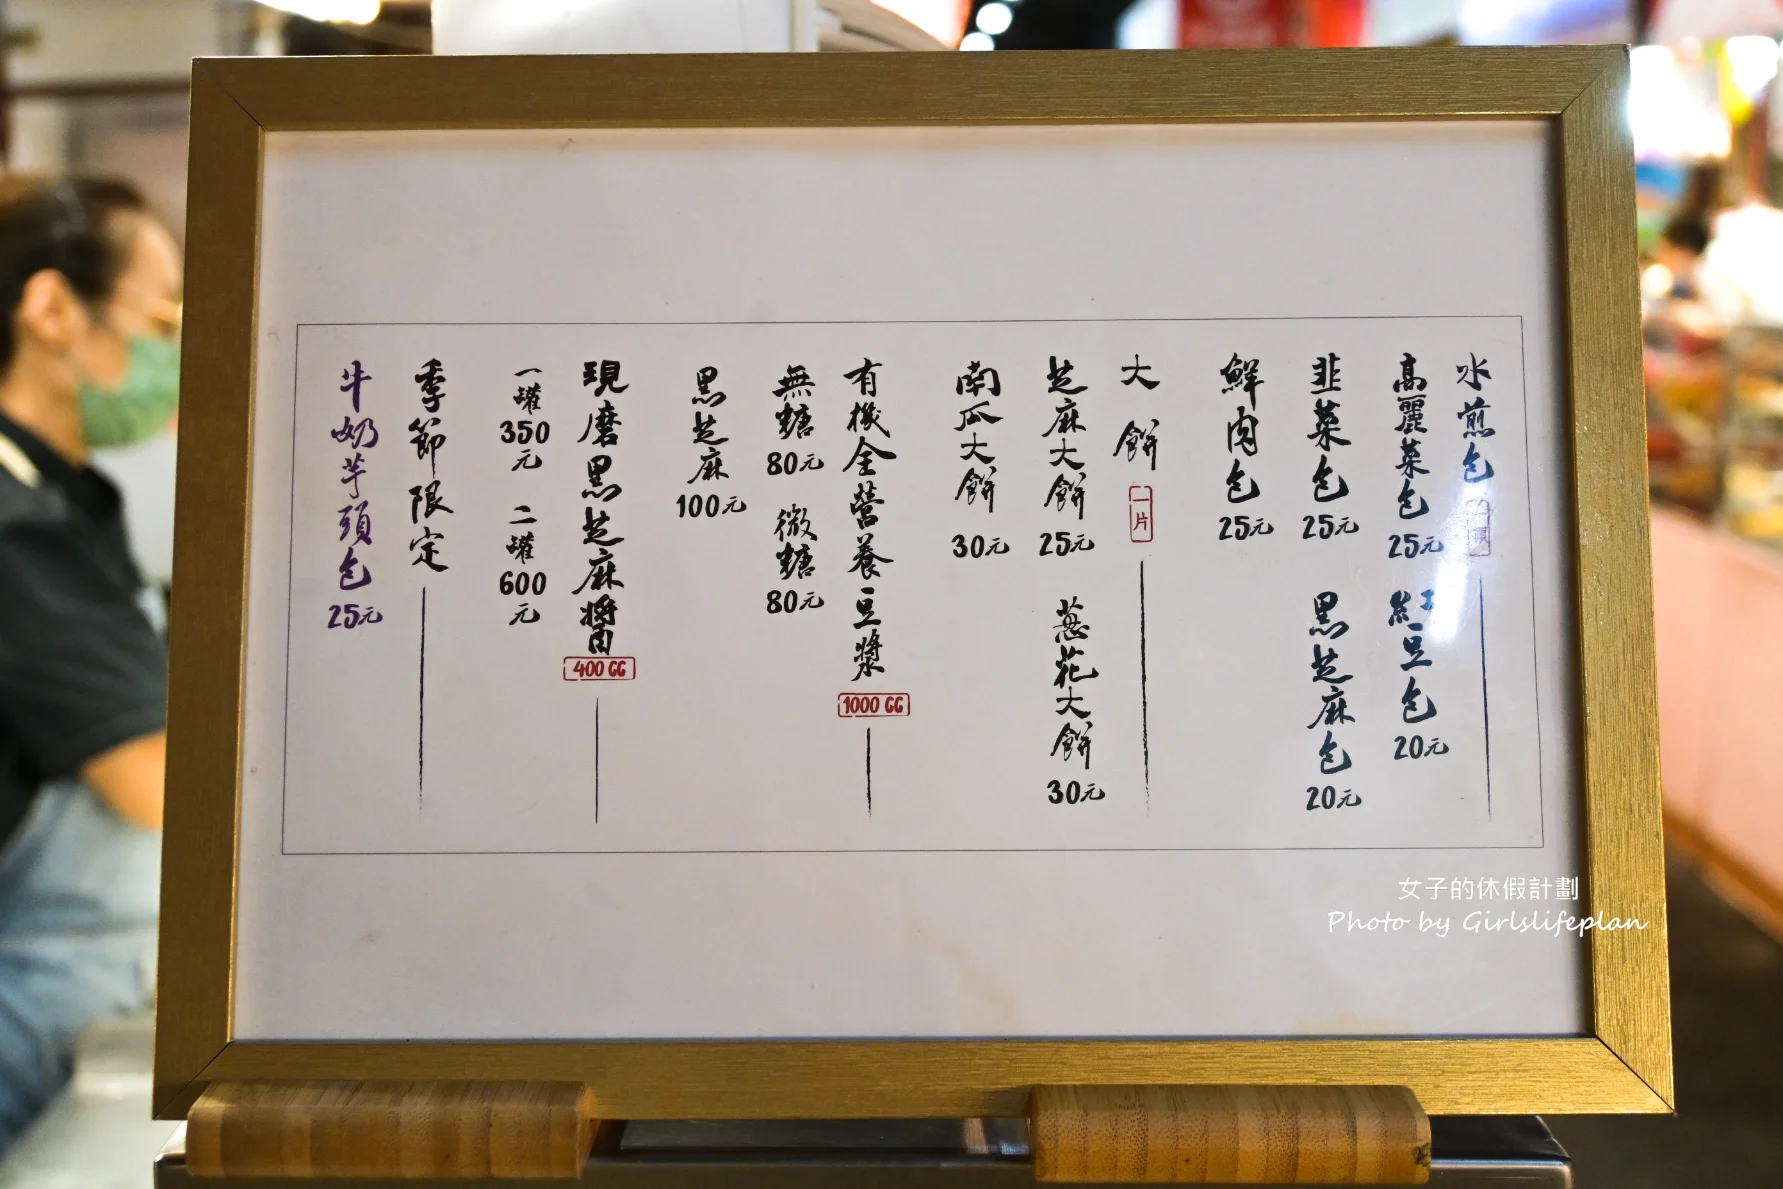 水煎包
高麗菜包 25元 紅豆包 20元
韭菜包 25元 黑芝麻包 20元
鮮肉包 25元
大餅 一片
芝麻大餅 25元 蔥花大餅 30元
南瓜大餅 30元
有機全營養豆漿 1000 CC
無糖 80元 微糖 80元
黑芝麻 100元
現磨黑芝麻醬 400 CC
一罐 350元 二罐 600元
季節限定
牛奶芋頭包 25元
女子的休假計劃
Photo by Girlslifeplan